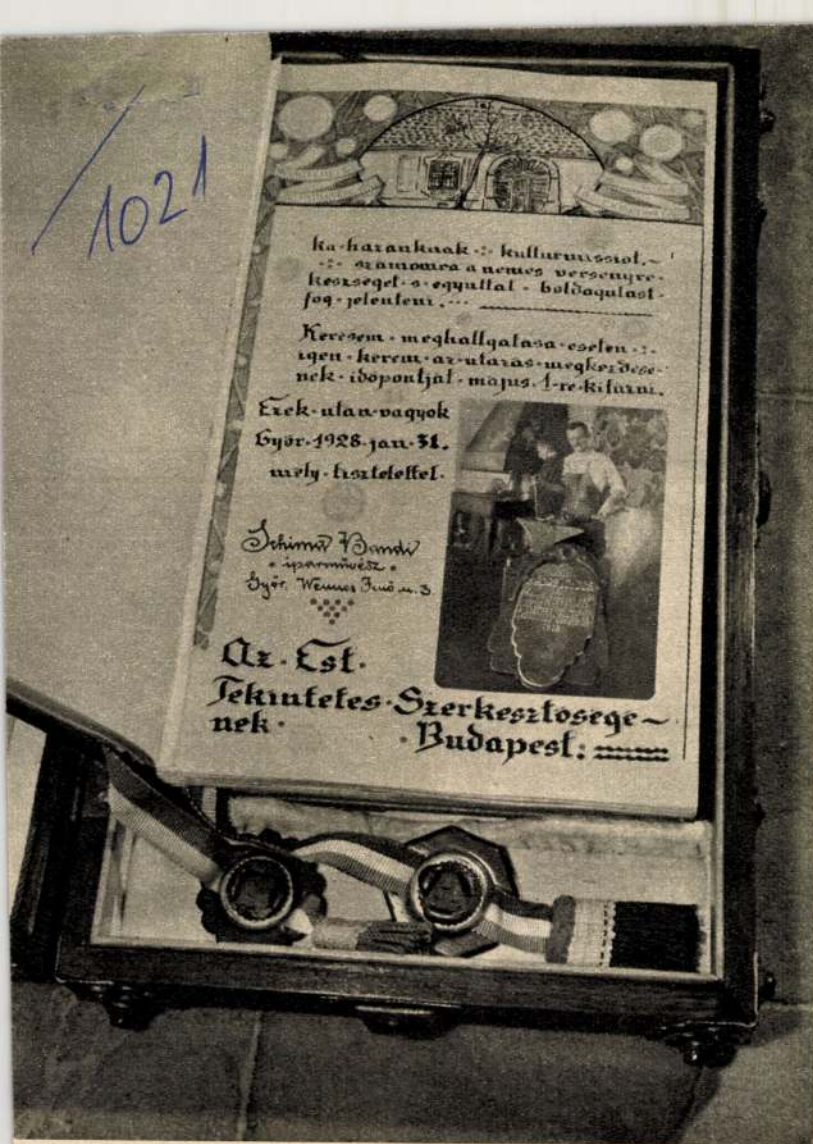 1021
ka·hazanknak·:·kulturmissiot,~
·:·szamomra a nemes versenyre-
keszseget·s·egyuttal·boldogulast·
fog·jelenteni.---
Keresem·meghallgatasa·eseten·:·
igen·kerem·az·utazas·megkezdese-
nek·idopontjat·majus·1-re·kitüzni.
Ezek·utan·vagyok
Györ·1928·jan·31.
mely·tisztelettel·
Schima Bandi
·iparművész·
Győr. Jenő u. 3
Az·Est·
Tekintetes·Szerkesztosege~
nek·
·Budapest: